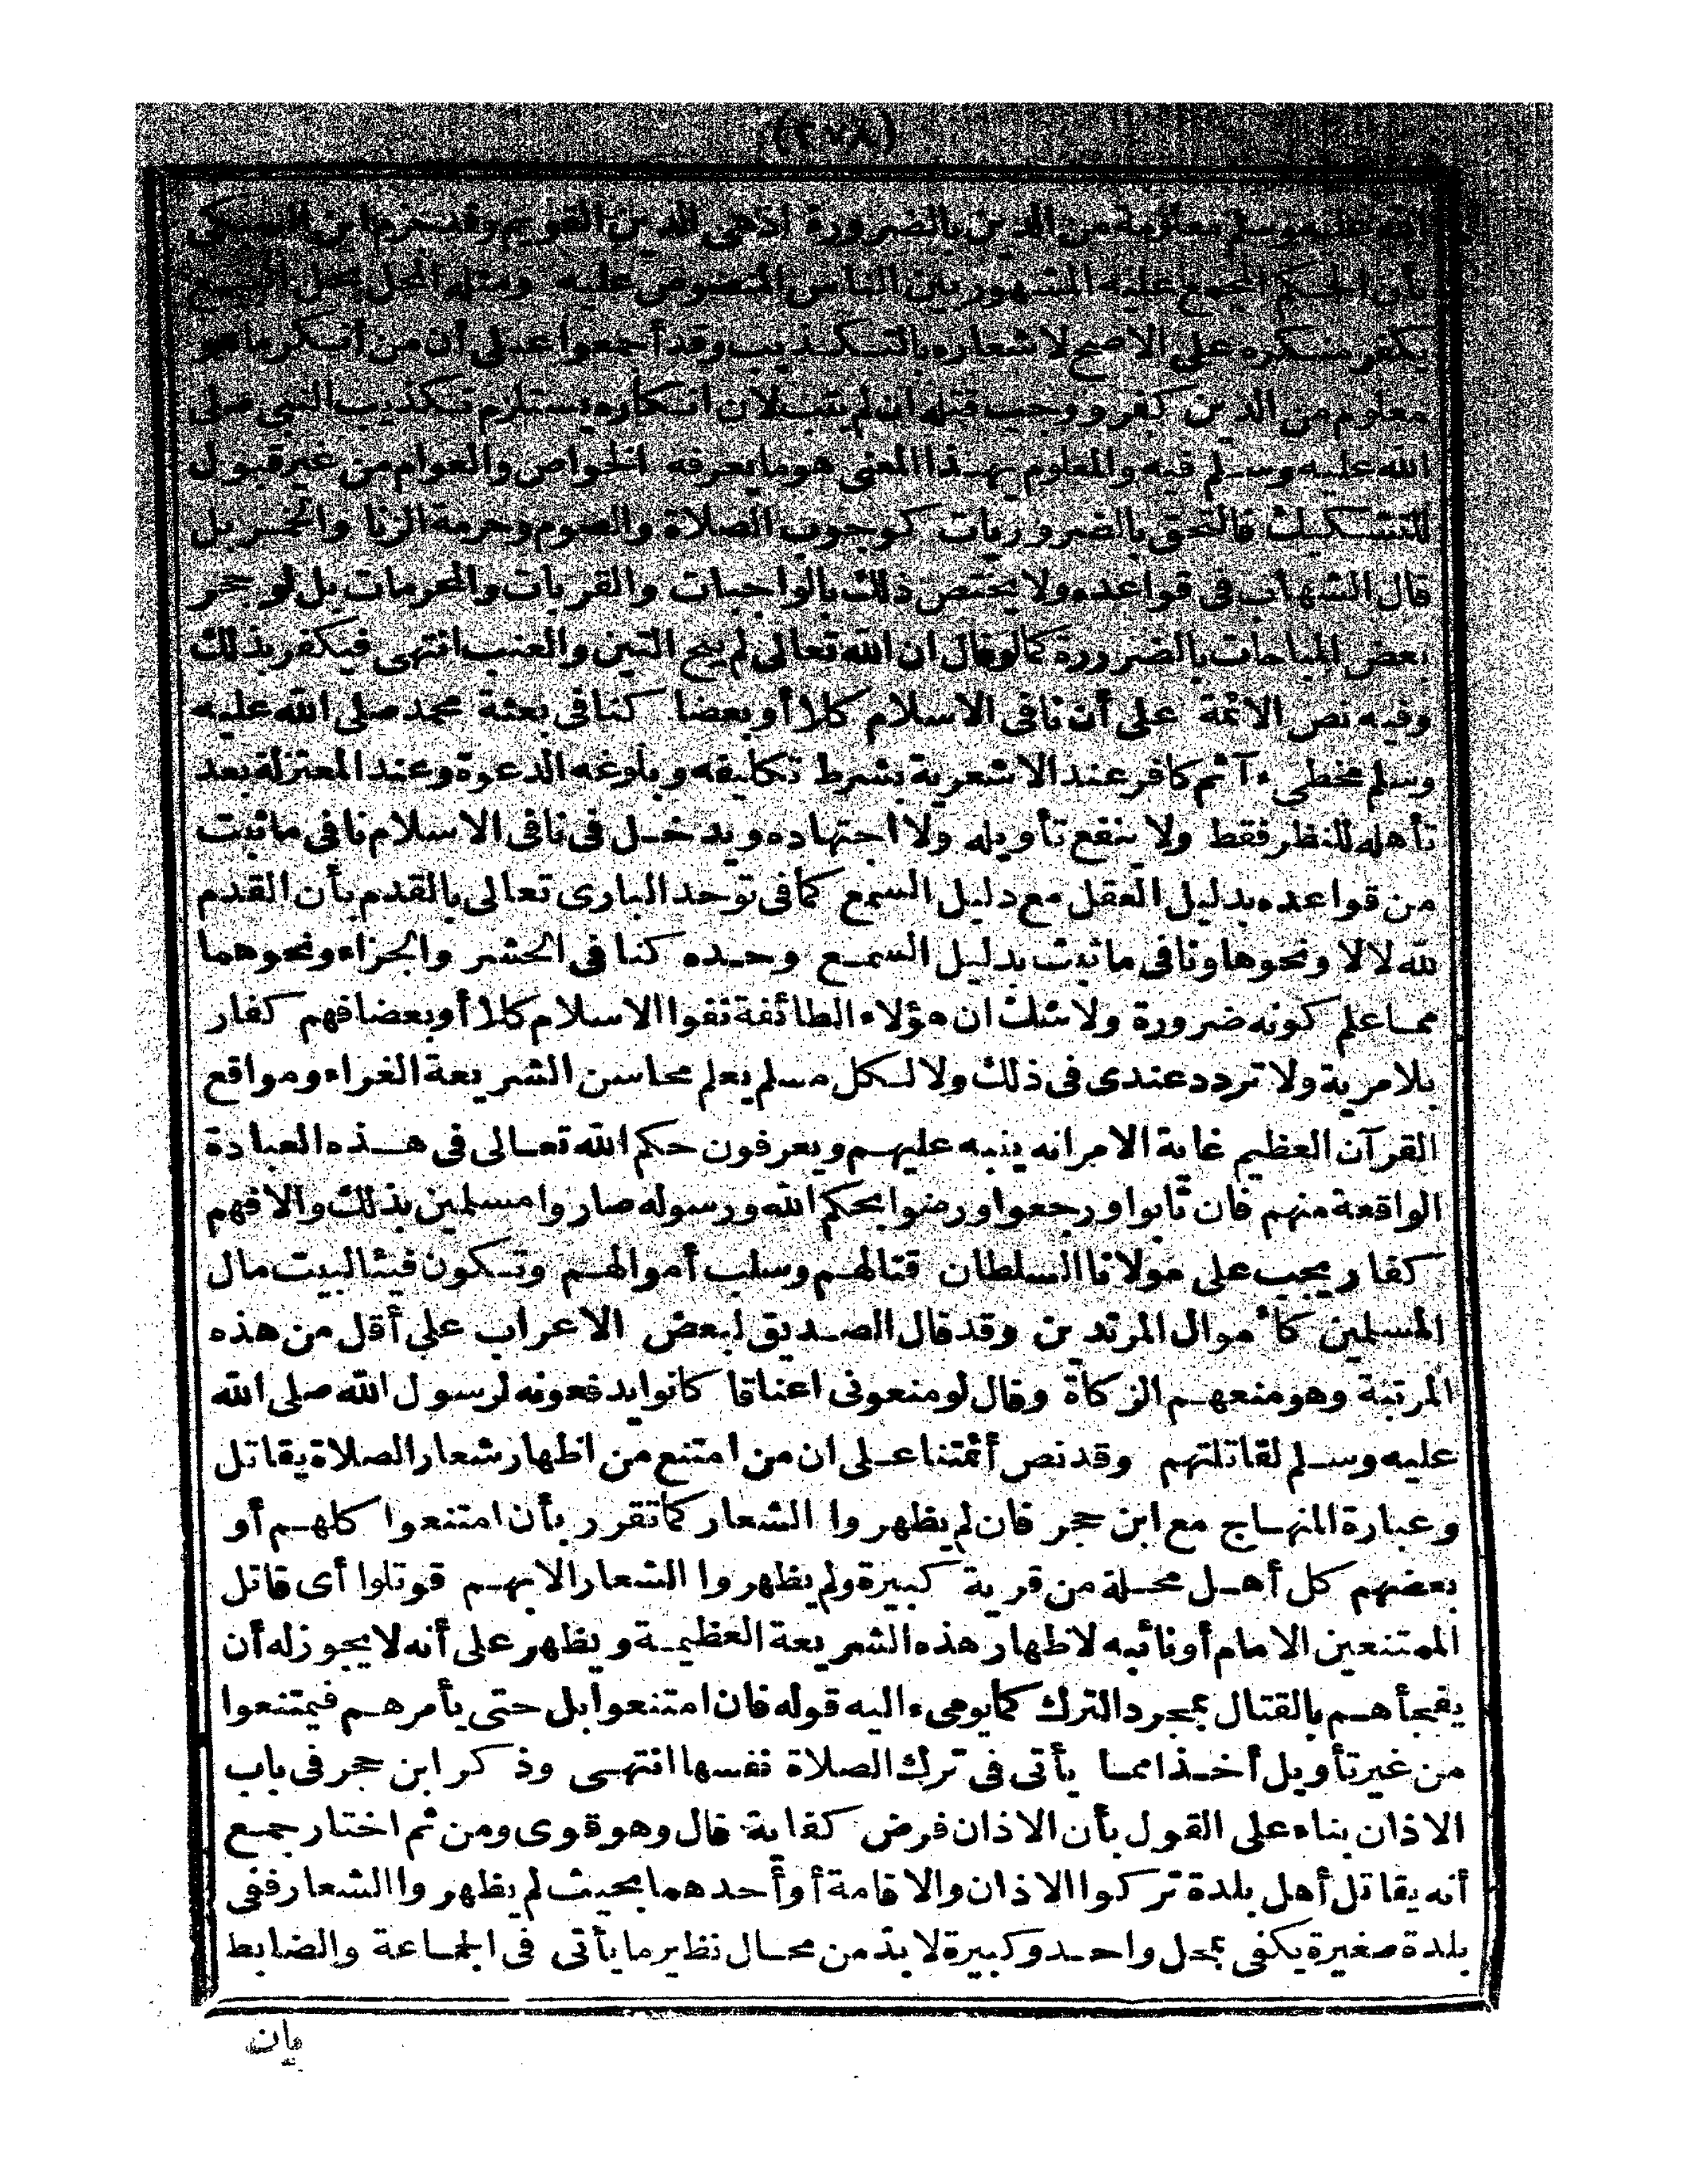 (٢٧٨)
الله عليه وسلم معلومة من الدين بالضرورة اذهى للدين القويم وقد جزم ابن السبكى
بأن الحكم المجمع عليه المشهور بين الناس المنصوص عليه ومثله الحل كحل البيع
يكفر منكره على الاصح لاشعاره بالتكذيب وقد أجمعوا على أن من أنكر ما هو
معلوم من الدين كفر ووجب قتله ان لم يتب لان انكاره يستلزم تكذيب النبى صلى
الله عليه وسلم فيه والمعلوم بهذا المعنى هو ما يعرفه الخواص والعوام من غير قبول
للتشكيك فالتحق بالضروريات كوجوب الصلاة والصوم وحرمة الزنا والخمر بل
قال الشهاب فى قواعده ولا يختص ذلك بالواجبات والقربات والمحرمات بل لو جحر
بعض المباحات بالضرورة كالوقال ان الله تعالى لم يبح التين والعنب انتهى فيكفر بذلك
وفيه نص الائمة على أن نافى الاسلام كلا أو بعضا كنافى بعثة محمد صلى الله عليه
وسلم مخطىء آثم كافر عند الاشعرية بشرط تكليفه وبلوغه الدعوة وعند المعتزلة بعد
تأهله للنظر فقط ولا ينفع تأويله ولا اجتهاده ويدخل فى نافى الاسلام نافى ما ثبت
من قواعده بدليل العقل مع دليل السمع كمافى توحد البارى تعالى بالقدم بأن القدم
لله لا لا ونحوها ونافى ما ثبت بدليل السمع وحده كنافى الحشر والجزاء ونحوهما
مما علم كونه ضرورة ولا شك ان هؤلاء الطائفة نفوا الاسلام كلا أو بعضا فهم كفار
بلا مرية ولا تردد عندى فى ذلك ولا لكل مسلم يعلم محاسن الشريعة الغراء ومواقع
القرآن العظيم غاية الامر انه ينبه عليهم ويعرفون حكم الله تعالى فى هذه العبادة
الواقعة منهم فان تابوا ورجعوا ورضوا بحكم الله ورسوله صاروا مسلمين بذلك والا فهم
كفار يجب على مولانا السلطان قتالهم وسلب أموالهم وتكون فيئا لبيت مال
المسلمين كأموال المرتدين وقد قال الصديق لبعض الاعراب على أقل من هذه
المرتبة وهو منعهم الزكاة وقال لو منعونى اعناقا كانوا يدفعونه لرسول الله صلى الله
عليه وسلم لقاتلتهم وقد نص أئمتنا على ان من امتنع من اظهار شعار الصلاة يقاتل
وعبارة المنهاج مع ابن حجر فان لم يظهروا الشعار كما تقرر بأن امتنعوا كلهم أو
بعضهم كل أهل محلة من قرية كبيرة ولم يظهروا الشعار الا بهم قوتلوا أى قاتل
الممتنعين الامام أو نائبه لاظهار هذه الشريعة العظيمة ويظهر على أنه لا يجوز له أن
يفجأهم بالقتال بمجرد الترك كما يومىء اليه قوله فان امتنعوا بل حتى يأمرهم فيمتنعوا
من غير تأويل أخذا مما يأتى فى ترك الصلاة نفسها انتهى وذكر ابن حجر فى باب
الاذان بناء على القول بأن الاذان فرض كفاية قال وهو قوى ومن ثم اختار جمع
أنه يقاتل أهل بلدة تركوا الاذان والاقامة أو أحدهما بحيث لم يظهروا الشعار ففى
بلدة صغيرة يكفى بمحل واحد وكبيرة لا بد من محال نظير ما يأتى فى الجماعة والضابط
بان